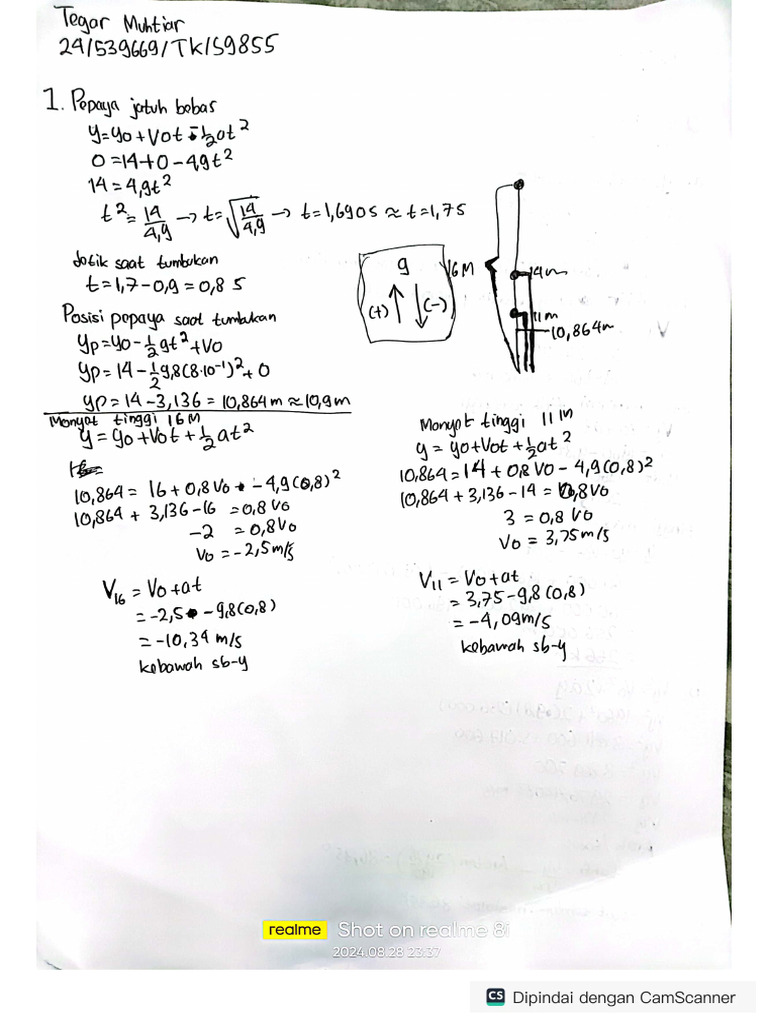 Tegar Muhtiar
24/539669/TK/59855
1. Pepaya jatuh bebas
y=yo+Vot-½at²
0=14+0-4,9t²
14=4,9t²
t²=14/4,9 → t=√14/4,9 → t=1,690s ≈ t=1,7s
detik saat tumbukan
t=1,7-0,9=0,8 s
Posisi pepaya saat tumbukan
yp=yo-½gt²+Vo
yp=14-½9,8(8·10⁻¹)²+0
yp=14-3,136=10,864m≈10,9m
g
(+) ↑ ↓ (-)
16M
14m
11m
10,864m
Monyat tinggi 16M
y=yo+Vot+½at²
10,864=16+0,8Vo-4,9(0,8)²
10,864+3,136-16=0,8Vo
-2=0,8Vo
Vo=-2,5m/s
V16=Vo+at
=-2,5-9,8(0,8)
=-10,34 m/s
kebawah sb-y
Monyat tinggi 11m
y=yo+Vot+½at²
10,864=14+0,8Vo-4,9(0,8)²
10,864+3,136-14=0,8Vo
3=0,8 Vo
Vo=3,75m/s
V11=Vo+at
=3,75-9,8(0,8)
=-4,09m/s
kebawah sb-y
realme Shot on realme 8i
2024.08.28 23:37
CS Dipindai dengan CamScanner